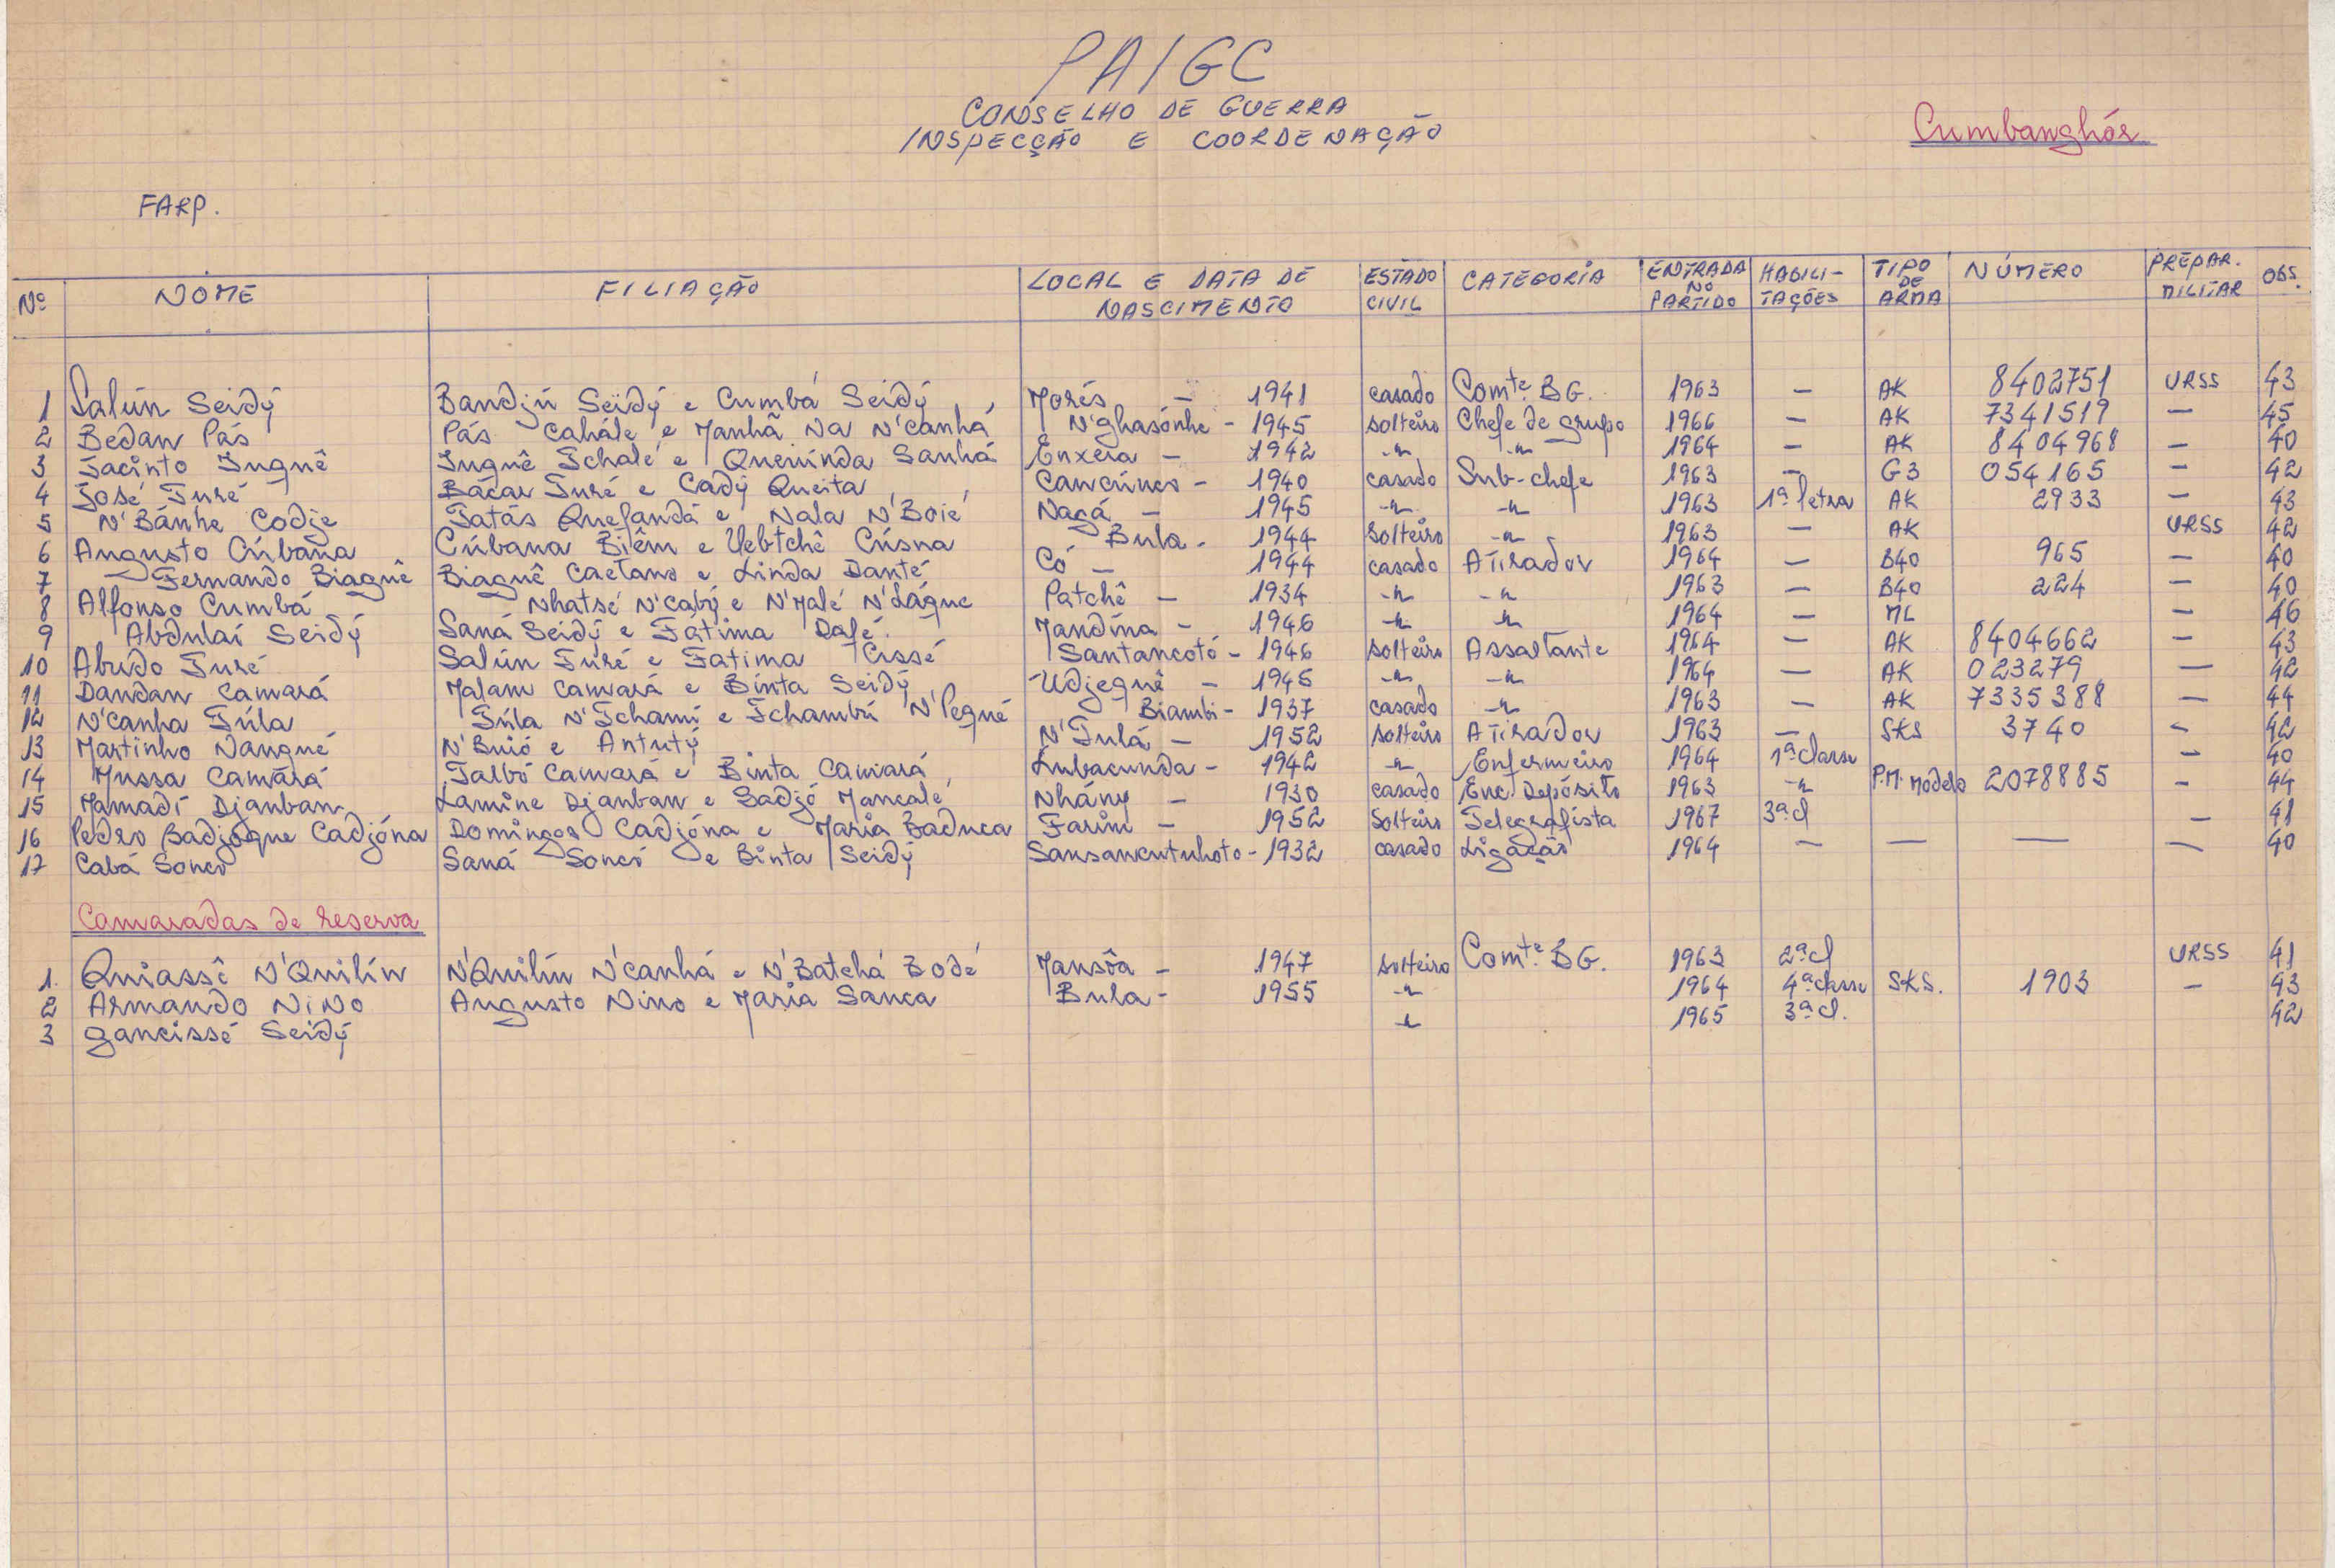 PAIGC
CONSELHO DE GUERRA
INSPECÇÃO E COORDENAÇÃO
Cumbanghór
FARP.
Nº NOME FILIAÇÃO LOCAL E DATA DE NASCIMENTO ESTADO CIVIL CATEGORIA ENTRADA NO PARTIDO HABILITAÇÕES TIPO DE ARMA NÚMERO PREPAR. MILITAR OBS.
1 Salún Seidý Bandjú Seidý e Cumbá Seidý Morés - 1941 casado Comte. BG. 1963 - AK 8402751 URSS 43
2 Bedan Pás Pás Cahále e Manhã Na N'canhá N'ghasónhe - 1945 solteiro Chefe de grupo 1966 - AK 7341519 - 45
3 Jacinto Inguê Inguê Tchalé e Quenínda Sanhá Enxeia - 1942 -"- -"- 1964 - AK 8404968 - 40
4 José Turé Bácar Turé e Cadý Queita Cancúnco - 1940 casado Sub-chefe 1963 - G3 054165 - 42
5 N'Bánhe Codje Tatás Quefandá e Nala N'Boié Nagá - 1945 -"- -"- 1963 1ª letra AK 2933 - 43
6 Augusto Cúbana Cúbana Biêm e Uebtchê Cúsna Bula - 1944 solteiro -"- 1963 - AK URSS 42
7 Fernando Biaguê Biaguê Caetano e Linda Danté Có - 1944 casado Atirador 1964 - B40 965 - 40
8 Alfonso Cumbá Nhatsé N'cabý e N'Malé N'Lágue Patchê - 1934 -"- -"- 1963 - B40 224 - 40
9 Abdulaí Seidý Saná Seidý e Fátima Dafé. Mandína - 1946 -"- -"- 1964 - ML - 46
10 Abudo Turé Salún Turé e Fatima Cissé Santancotó - 1946 solteiro Assaltante 1964 - AK 8404662 - 43
11 Dandan Camará Malam Camará e Bínta Seidý Udjeguê - 1945 -"- -"- 1964 - AK 023279 - 42
12 N'canha Túla Túla N'Tchamí e Tchambú N'Pegné Biambi - 1937 casado -"- 1963 - AK 7335388 - 44
13 Martinho Nangué N'Buió e Antutý N'Tulá - 1952 solteiro Atirador 1963 - SKS 3740 - 42
14 Mussa Camárá Talbó Camará e Binta Camará Lubacunda - 1942 -"- Enfermeiro 1964 1ª classe - 40
15 Mamadí Djanban Lamine Djanban e Sadjó Mancalé Nhány - 1930 casado Enc. Depósito 1963 -"- P.M. Modelo 2078885 - 44
16 Pedro Badjogue Cadjóna Domingos Cadjóna e Maria Baduca Farim - 1952 Solteiro Telegrafista 1967 3ª cl - 41
17 Cabá Sonco Saná Soncó e Binta Seidý Sansancutuhoto - 1932 casado Ligação 1964 - - - - 40
Camaradas de reserva
1. Quiassê N'Quilín N'Quilín N'canhá e N'Batchá Bodé Mansôa - 1947 solteiro Comte. BG. 1963 2ª cl URSS 41
2 Armando Nino Augusto Nino e Maria Sanca Bula - 1955 -"- 1964 4ª classe SKS. 1903 - 43
3 Gancissé Seidý -"- 1965 3ª cl. 42